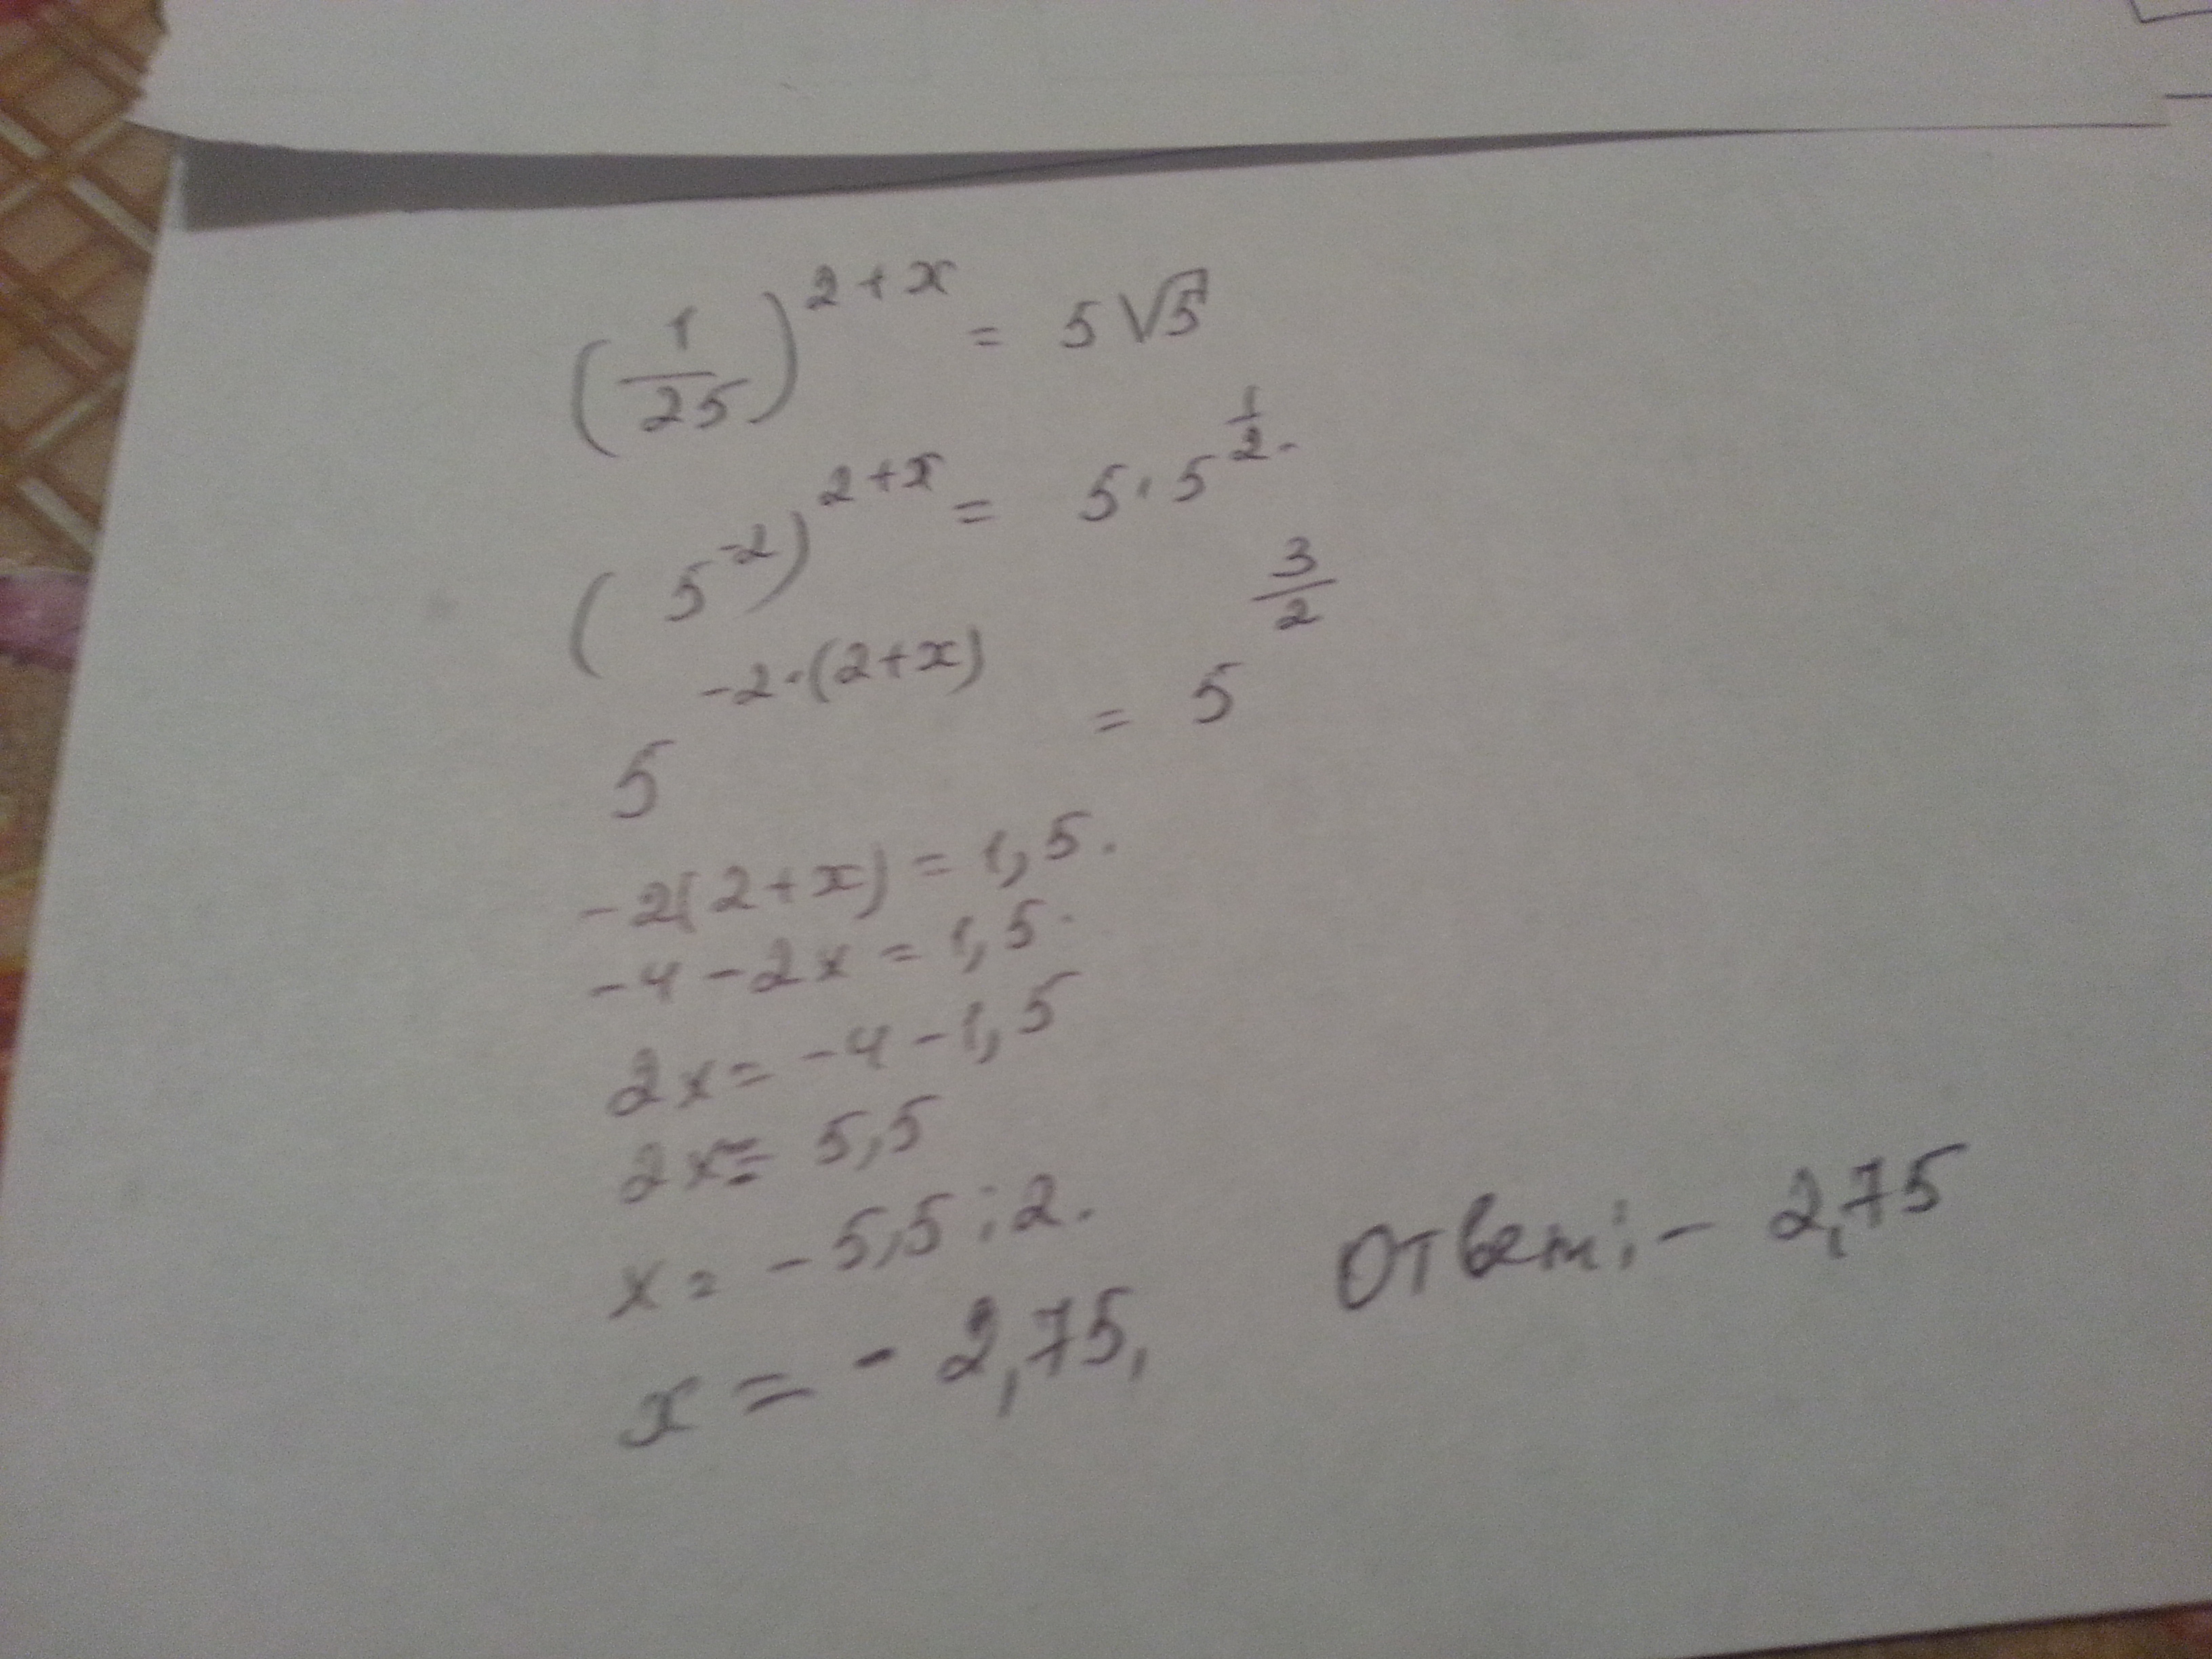 (1/25)^(2+x) = 5√5
(5^(-2))^(2+x) = 5·5^(1/2).
5^(-2·(2+x)) = 5^(3/2)
-2(2+x) = 1,5.
-4-2x = 1,5.
2x = -4-1,5
2x = 5,5
x = -5,5:2.
x = -2,75,
Ответ: -2,75